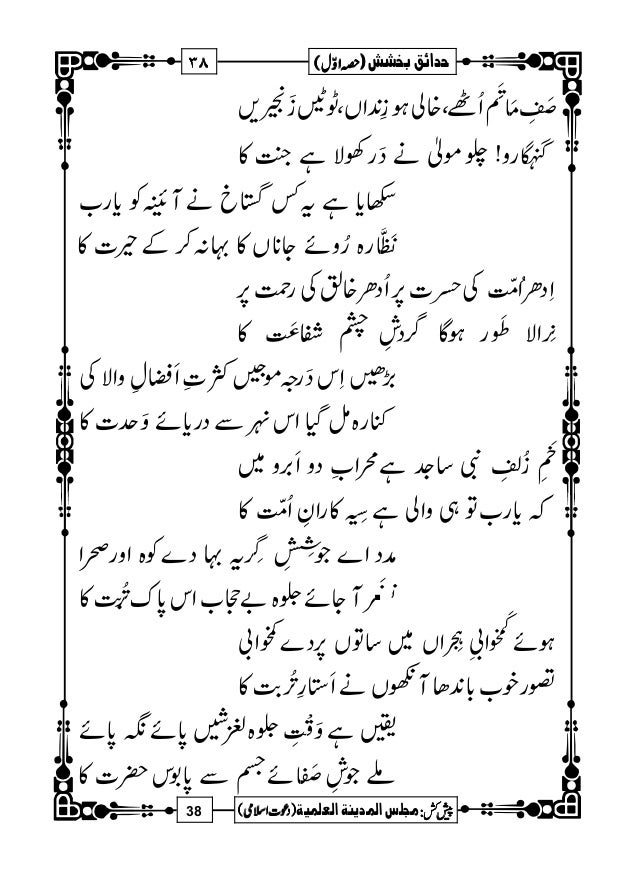 حدائق بخشش (حصہ اوّل)
۳۸
صَفِ مَاتَم اُٹھے، خالی ہو زِنداں، ٹوٹیں زَنجیریں
گنہگارو! چلو مولیٰ نے دَر کھولا ہے جنت کا
سکھایا ہے یہ کس گستاخ نے آئینہ کو یارب
نَظَّارہ رُوئے جاناں کا بہانہ کر کے حیرت کا
اِدھر اُمّت کی حسرت پر اُدھر خالق کی رحمت پر
نِرالا طَور ہوگا گردشِ چشمِ شفاعَت کا
بڑھیں اِس دَرجہ موجیں کثرتِ اَفضالِ والا کی
کنارہ مل گیا اس نہر سے دریائے وَحدت کا
خَمِ زُلفِ نبی ساجد ہے محرابِ دو اَبرو میں
کہ یارب تو ہی والی ہے سِیہ کارانِ اُمّت کا
مدد اے جوشِشِ گِریہ بہا دے کوہ اور صحرا
نظر آ جائے جلوہ بے حجاب اس پاک تُربت کا
ہوئے کَمخوابیِ ہِجراں میں ساتوں پردے کمخوابی
تصور خوب باندھا آنکھوں نے اَستارِ تُربت کا
یقیں ہے وَقْتِ جلوہ لغزشیں پائے نگہ پائے
ملے جوشِ صَفائے جسم سے پابوس حضرت کا
پیش کش: مجلس المدینة العلمیة (دعوتِ اسلامی)
38